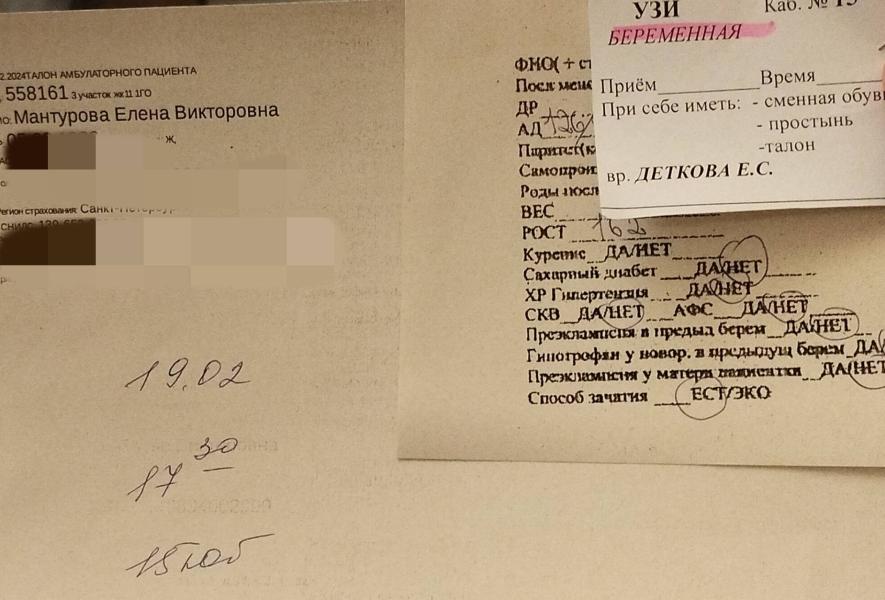 2.2024ТАЛОН АМБУЛАТОРНОГО ПАЦИЕНТА
558161 3 участок жк11 1ГО
Мантурова Елена Викторовна
Ж,
регион страхования: Санкт-Петербург
19.02
17 30
15 каб
УЗИ Каб. № 15
БЕРЕМЕННАЯ
Приём Время
При себе иметь: - сменная обувь
- простынь
-талон
вр. ДЕТКОВА Е.С.
ФИО( + ст
Посл менс
ДР
АД 126/
Паритет(к
Самопрои
Роды посл
ВЕС
РОСТ 162
Курение ДА/НЕТ
Сахарный диабет ДА/НЕТ
ХР Гипертензия ДА/НЕТ
СКВ ДА/НЕТ АФС ДА/НЕТ
Преэклампсия в предыд берем ДА/НЕТ
Гипотрофия у новор. в предыдущ берем ДА/
Преэклампсия у матери пациентки ДА/НЕТ
Способ зачатия ЕСТ/ЭКО